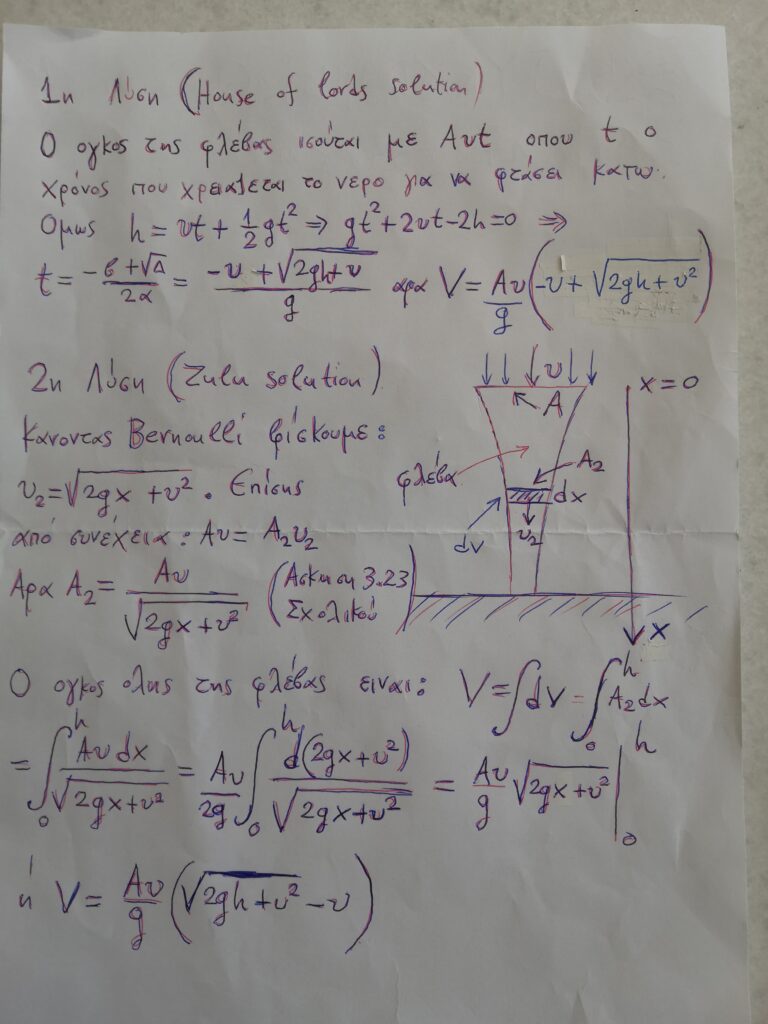 1η Λύση (House of lords solution)
Ο ογκος της φλέβας ισούται με Aυt οπου t ο
χρόνος που χρειαζεται το νερο για να φτάσει κατω.
Ομως h = υt + 1/2 gt² ⇒ gt² + 2υt - 2h = 0 ⇒
t = (-β + √Δ)/2α = (-υ + √(2gh + υ))/g αρα V = Aυ/g (-υ + √(2gh + υ²))
2η Λύση (Zulu solution)
Κανοντας Bernoulli βρίσκουμε:
υ₂ = √(2gx + υ²). Επίσης
από συνέχεια: Aυ = A₂υ₂
Αρα A₂ = Aυ/√(2gx + υ²) (Ασκηση 3.23 Σχολικού)
υ
A
x = 0
φλέβα
A₂
dx
dV
υ₂
x
Ο ογκος ολης της φλέβας ειναι: V = ∫dV = ∫₀ʰ A₂dx
= ∫₀ʰ Aυdx/√(2gx + υ²) = Aυ/2g ∫₀ʰ d(2gx + υ²)/√(2gx + υ²) = Aυ/g √(2gx + υ²) |₀ʰ
ή V = Aυ/g (√(2gh + υ²) - υ)